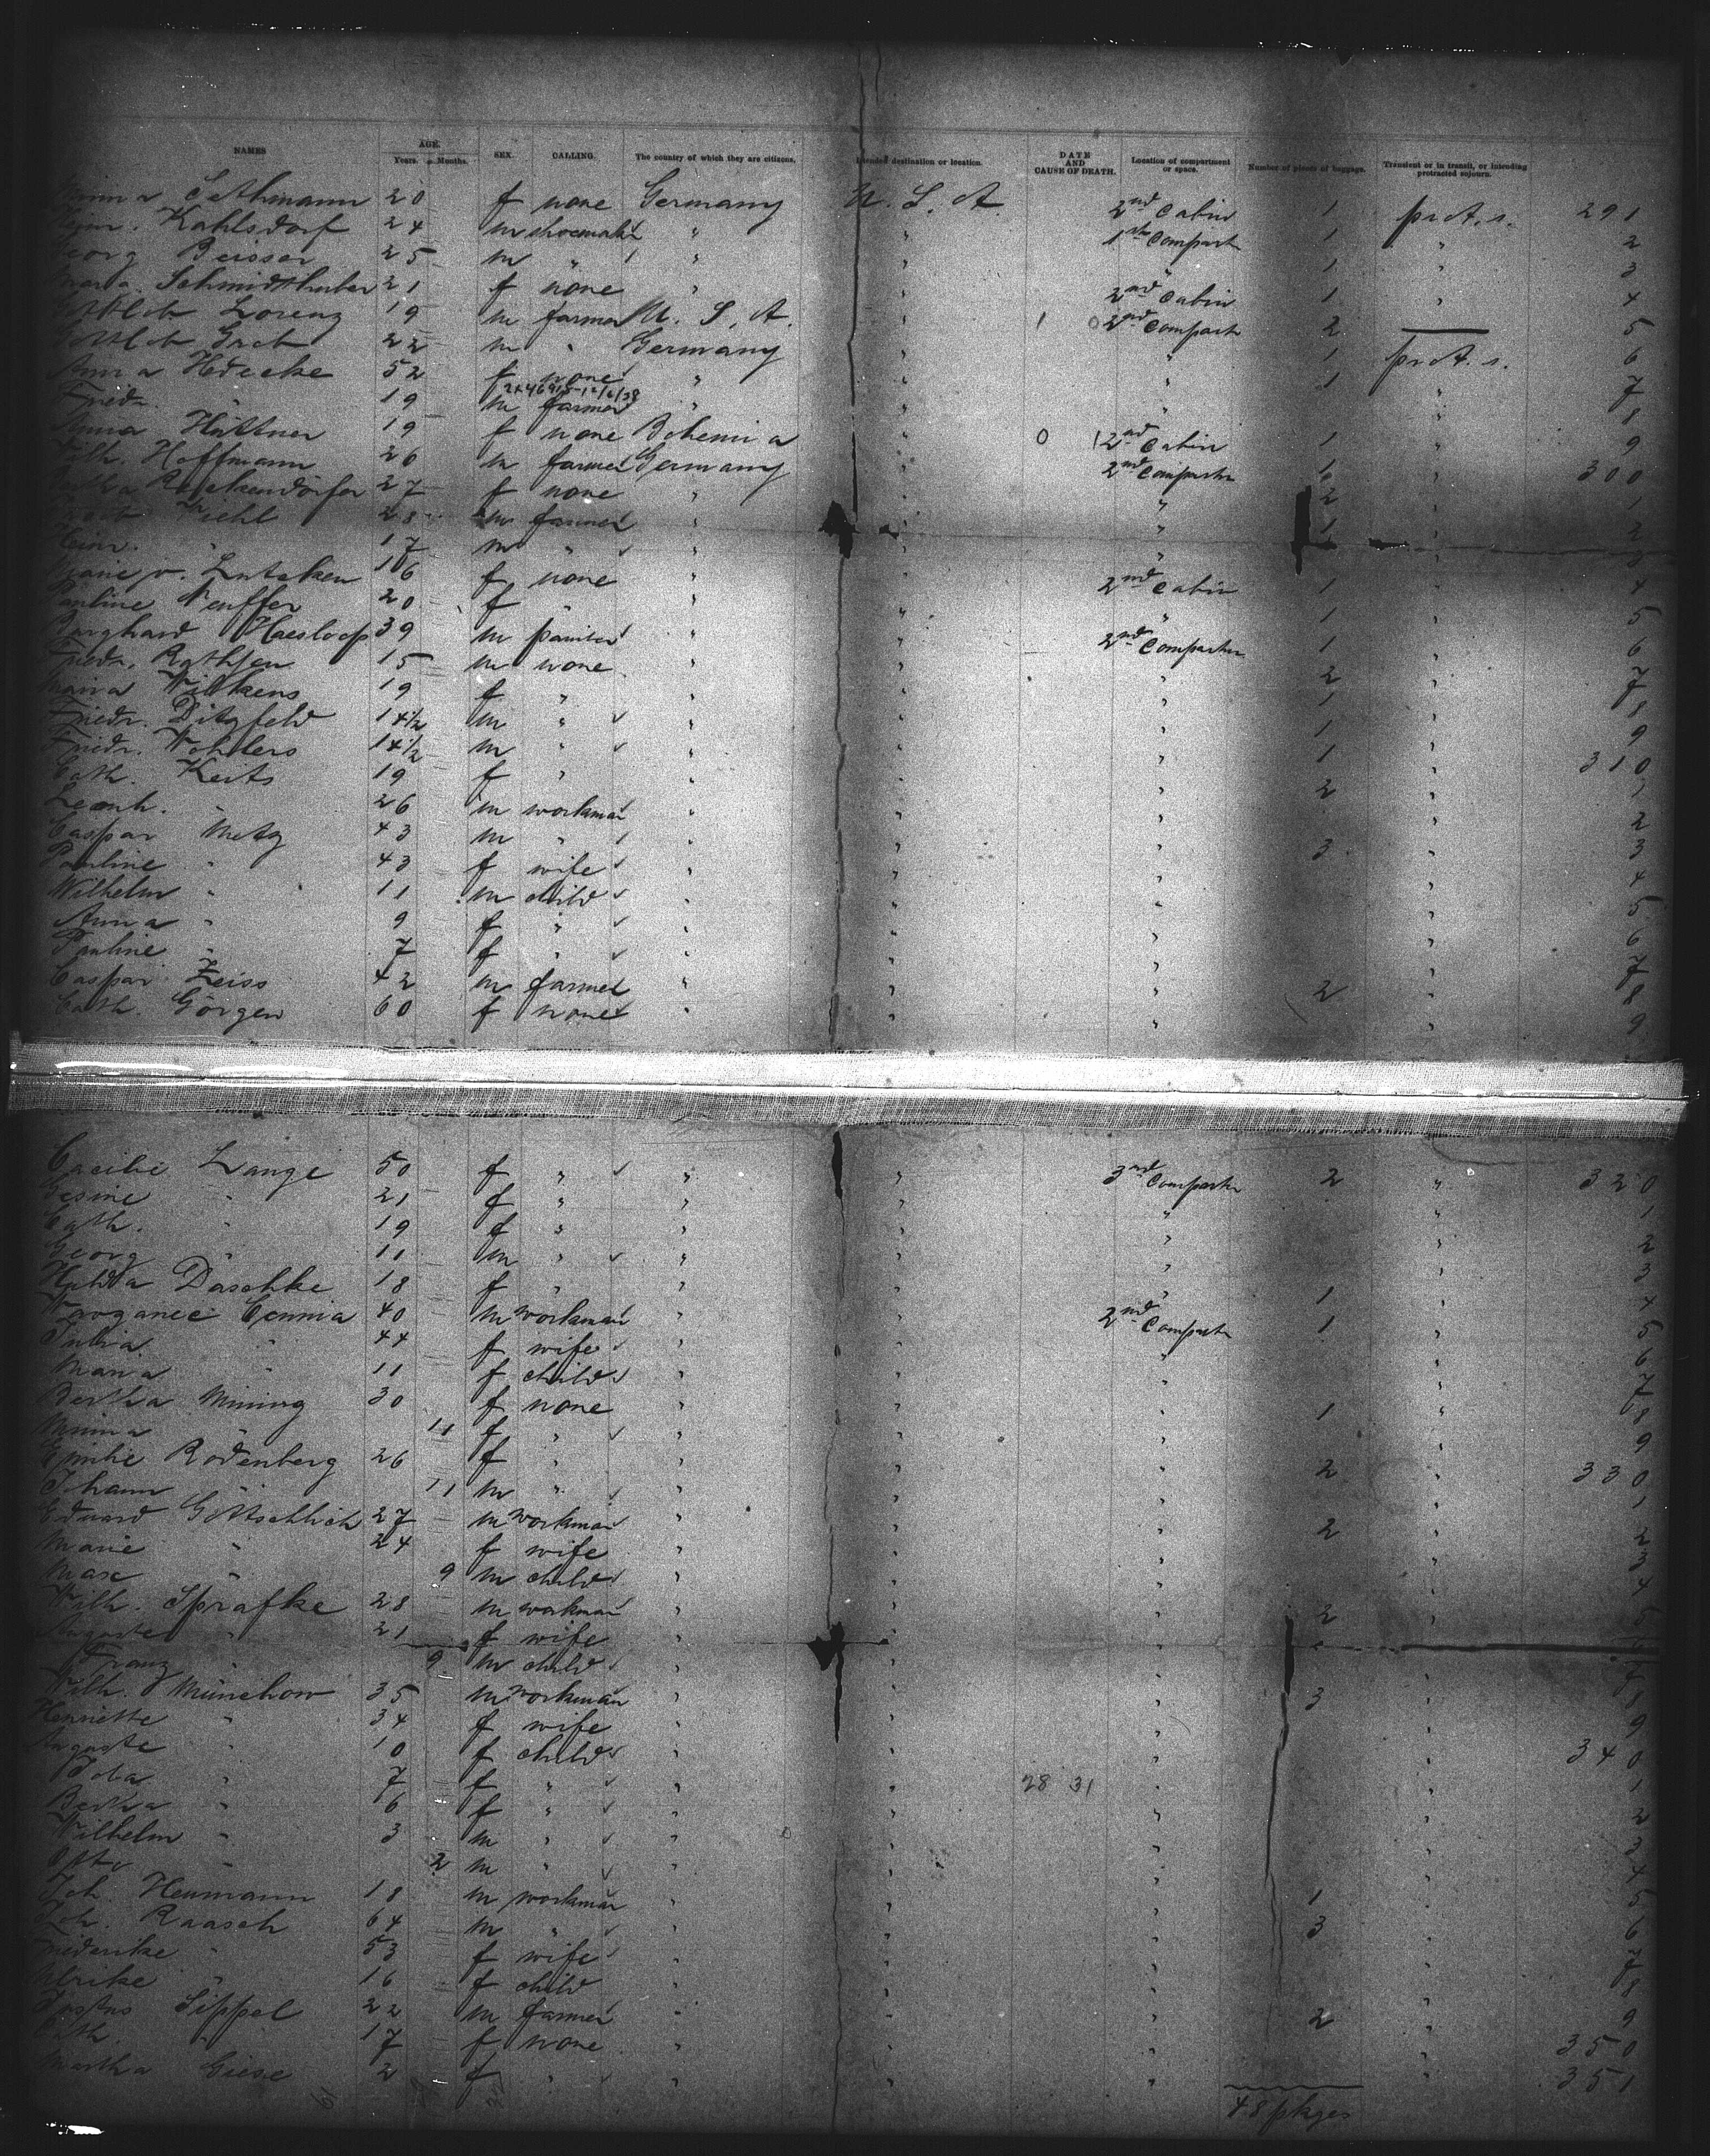 NAMES AGE. Years. Months. SEX. CALLING. The country of which they are citizens. Intended destination or location. DATE AND CAUSE OF DEATH. Location of compartment or space. Number of pieces of baggage. Transient or in transit, or intending protracted sojourn.
Sethmann 20 f none Germany U. S. A. 2nd Cabin 1 prot. s. 291
Kahlsdorf 24 m shoemaker " " 1st Compart 1 " 2
Georg Beisser 25 m " " " " 1 " 3
Maria Schmidthuber 21 f none " " 2nd Cabin 1 " 4
Gottlob Lorenz 19 m farmer U. S. A. " 2nd Compart 2 — 5
Gottlob Grob 22 m " Germany " " 1 prot. s. 6
Anna Hedecke 52 f none " " " 1 " 7
2x46915-12/6/38
Friedr. " 19 m farmer " " " " 8
Anna Hüttner 19 f none Bohemia " 0 1 2nd Cabin 1 " 9
Wilh. Hoffmann 26 m farmer Germany " 2nd Compartm 1 " 300
27 f none " " " 2 " 1
Viehl 28 m farmer " " " 1 " 2
Heinr. " 17 m " " " " " 3
Marie v. Lutcken 16 f none " " 2nd Cabin 1 " 4
Pauline Neuffer 20 f " " " " 1 " 5
Burghard Haesloop 39 m painter " " 2nd Compartm 1 " 6
Friedr. Rathjen 15 m none " " " 2 " 7
Maria Wilkens 19 f " " " " 1 " 8
Friedr. Ditzfeld 14 1/2 m " " " " 1 " 9
Friedr. Wohlers 14 1/2 m " " " " 1 " 310
Cath. Keits 19 f " " " " 2 " 1
Leonh. " 26 m workman " " " " 2
Caspar Metz 43 m " " " " 3 " 3
Pauline " 43 f wife " " " " 4
Wilhelm " 11 m child " " " " 5
Anna " 9 f " " " " " 6
Pauline " 7 f " " " " " 7
Caspar Zeiss 42 m farmer " " " 2 " 8
Cath. Görgen 60 f none " " " " 9
Cacilie Lange 50 f " " " 3rd Compartm 2 " 320
Gesine " 21 f " " " " " 1
Cath. " 19 f " " " " " 2
Georg " 11 m " " " " " 3
Hulda Daschke 18 f " " " " 1 " 4
40 m workman " " 2nd Compartm 1 " 5
Julia " 44 f wife " " " " 6
Maria " 11 f child " " " " 7
Bertha Mining 30 f none " " " 1 " 8
Minna " 11 f " " " " " 9
Emilie Rodenberg 26 f " " " " 2 " 330
Johann " 11 m " " " " " 1
Eduard Göttschlich 27 m workman " " " 2 " 2
Marie " 24 f wife " " " " 3
Max " 9 m child " " " " 4
Wilh. Sprafke 28 m workman " " " 2 " 5
Auguste " 21 f wife " " " " 6
Franz " 9 m child " " " " 7
Wilh. Münchow 35 m workman " " " 3 " 8
Henriette " 34 f wife " " " " 9
Auguste " 10 f child " " " " 340
" 7 f " " " 28 31 " " 1
Bertha " 6 f " " " " " 2
Wilhelm " 3 m " " " " " 3
Otto " 2 m " " " " " 4
Joh. Heumann 18 m workman " " " 1 " 5
Joh. Raasch 64 m " " " " 3 " 6
Friederike " 53 f wife " " " " 7
Ulrike " 16 f child " " " " 8
Justus Sippel 22 m farmer " " " 2 " 9
Cath. " 17 f none " " " " 350
Martha Giese 2 f " " " " " 351
48 pkges